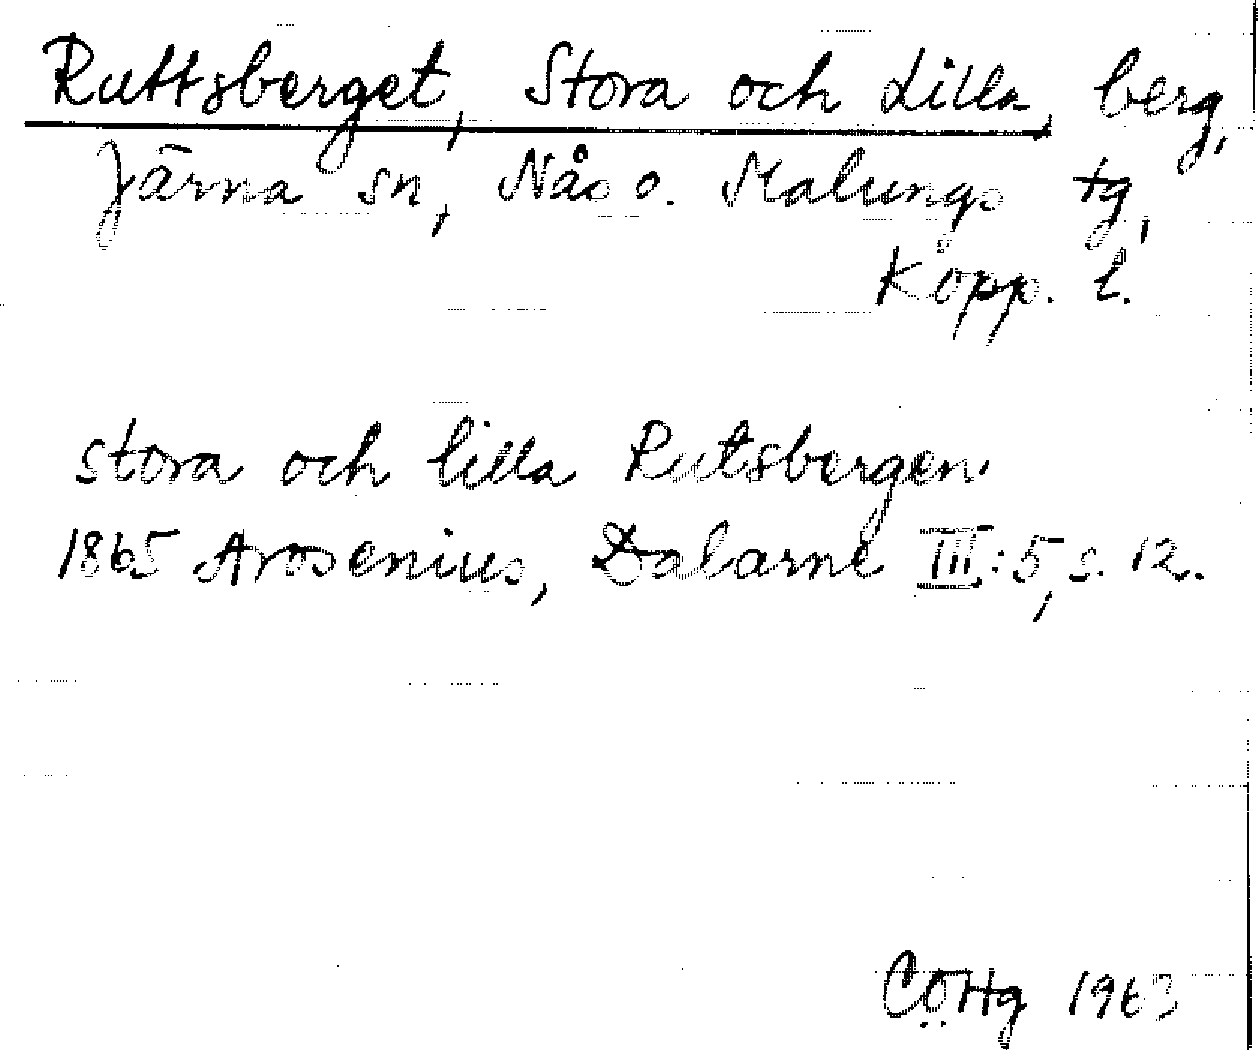 Ruttsberget, Stora och Lilla, berg,
Järna sn, Nås o. Malungs tg,
Kopp. l.
stora och lilla Rutsbergen.
1865 Arosenius, Dalarne III:5, s. 12.
CÖHg 1963